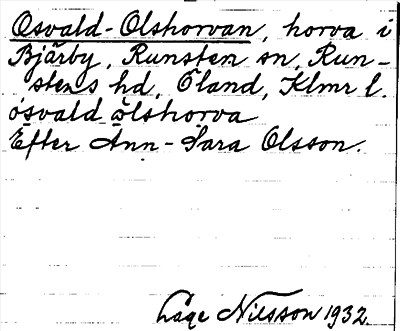 Osvald-Olshorvan, horva i
Bjärby, Runsten sn, Run-
stens hd, Öland, Klmr l.
osvald ölshorva
Efter Ann-Sara Olsson.
Låge Nilsson 1932.